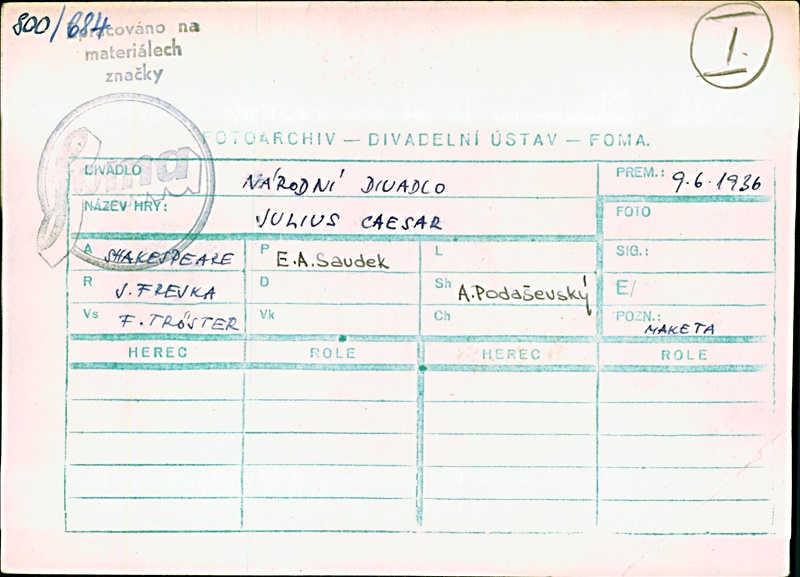 800/684
Zpracováno na
materiálech
značky
foma
I.
FOTOARCHIV — DIVADELNÍ ÚSTAV — FOMA.
DIVADLO NÁRODNÍ DIVADLO PREM.: 9.6.1936
NÁZEV HRY: JULIUS CAESAR FOTO
A SHAKESPEARE P E.A.Saudek L SIG.:
R J. FREJKA D Sh A.Podaševský E/
Vs F. TRÖSTER Vk Ch POZN.: MAKETA
HEREC ROLE HEREC ROLE